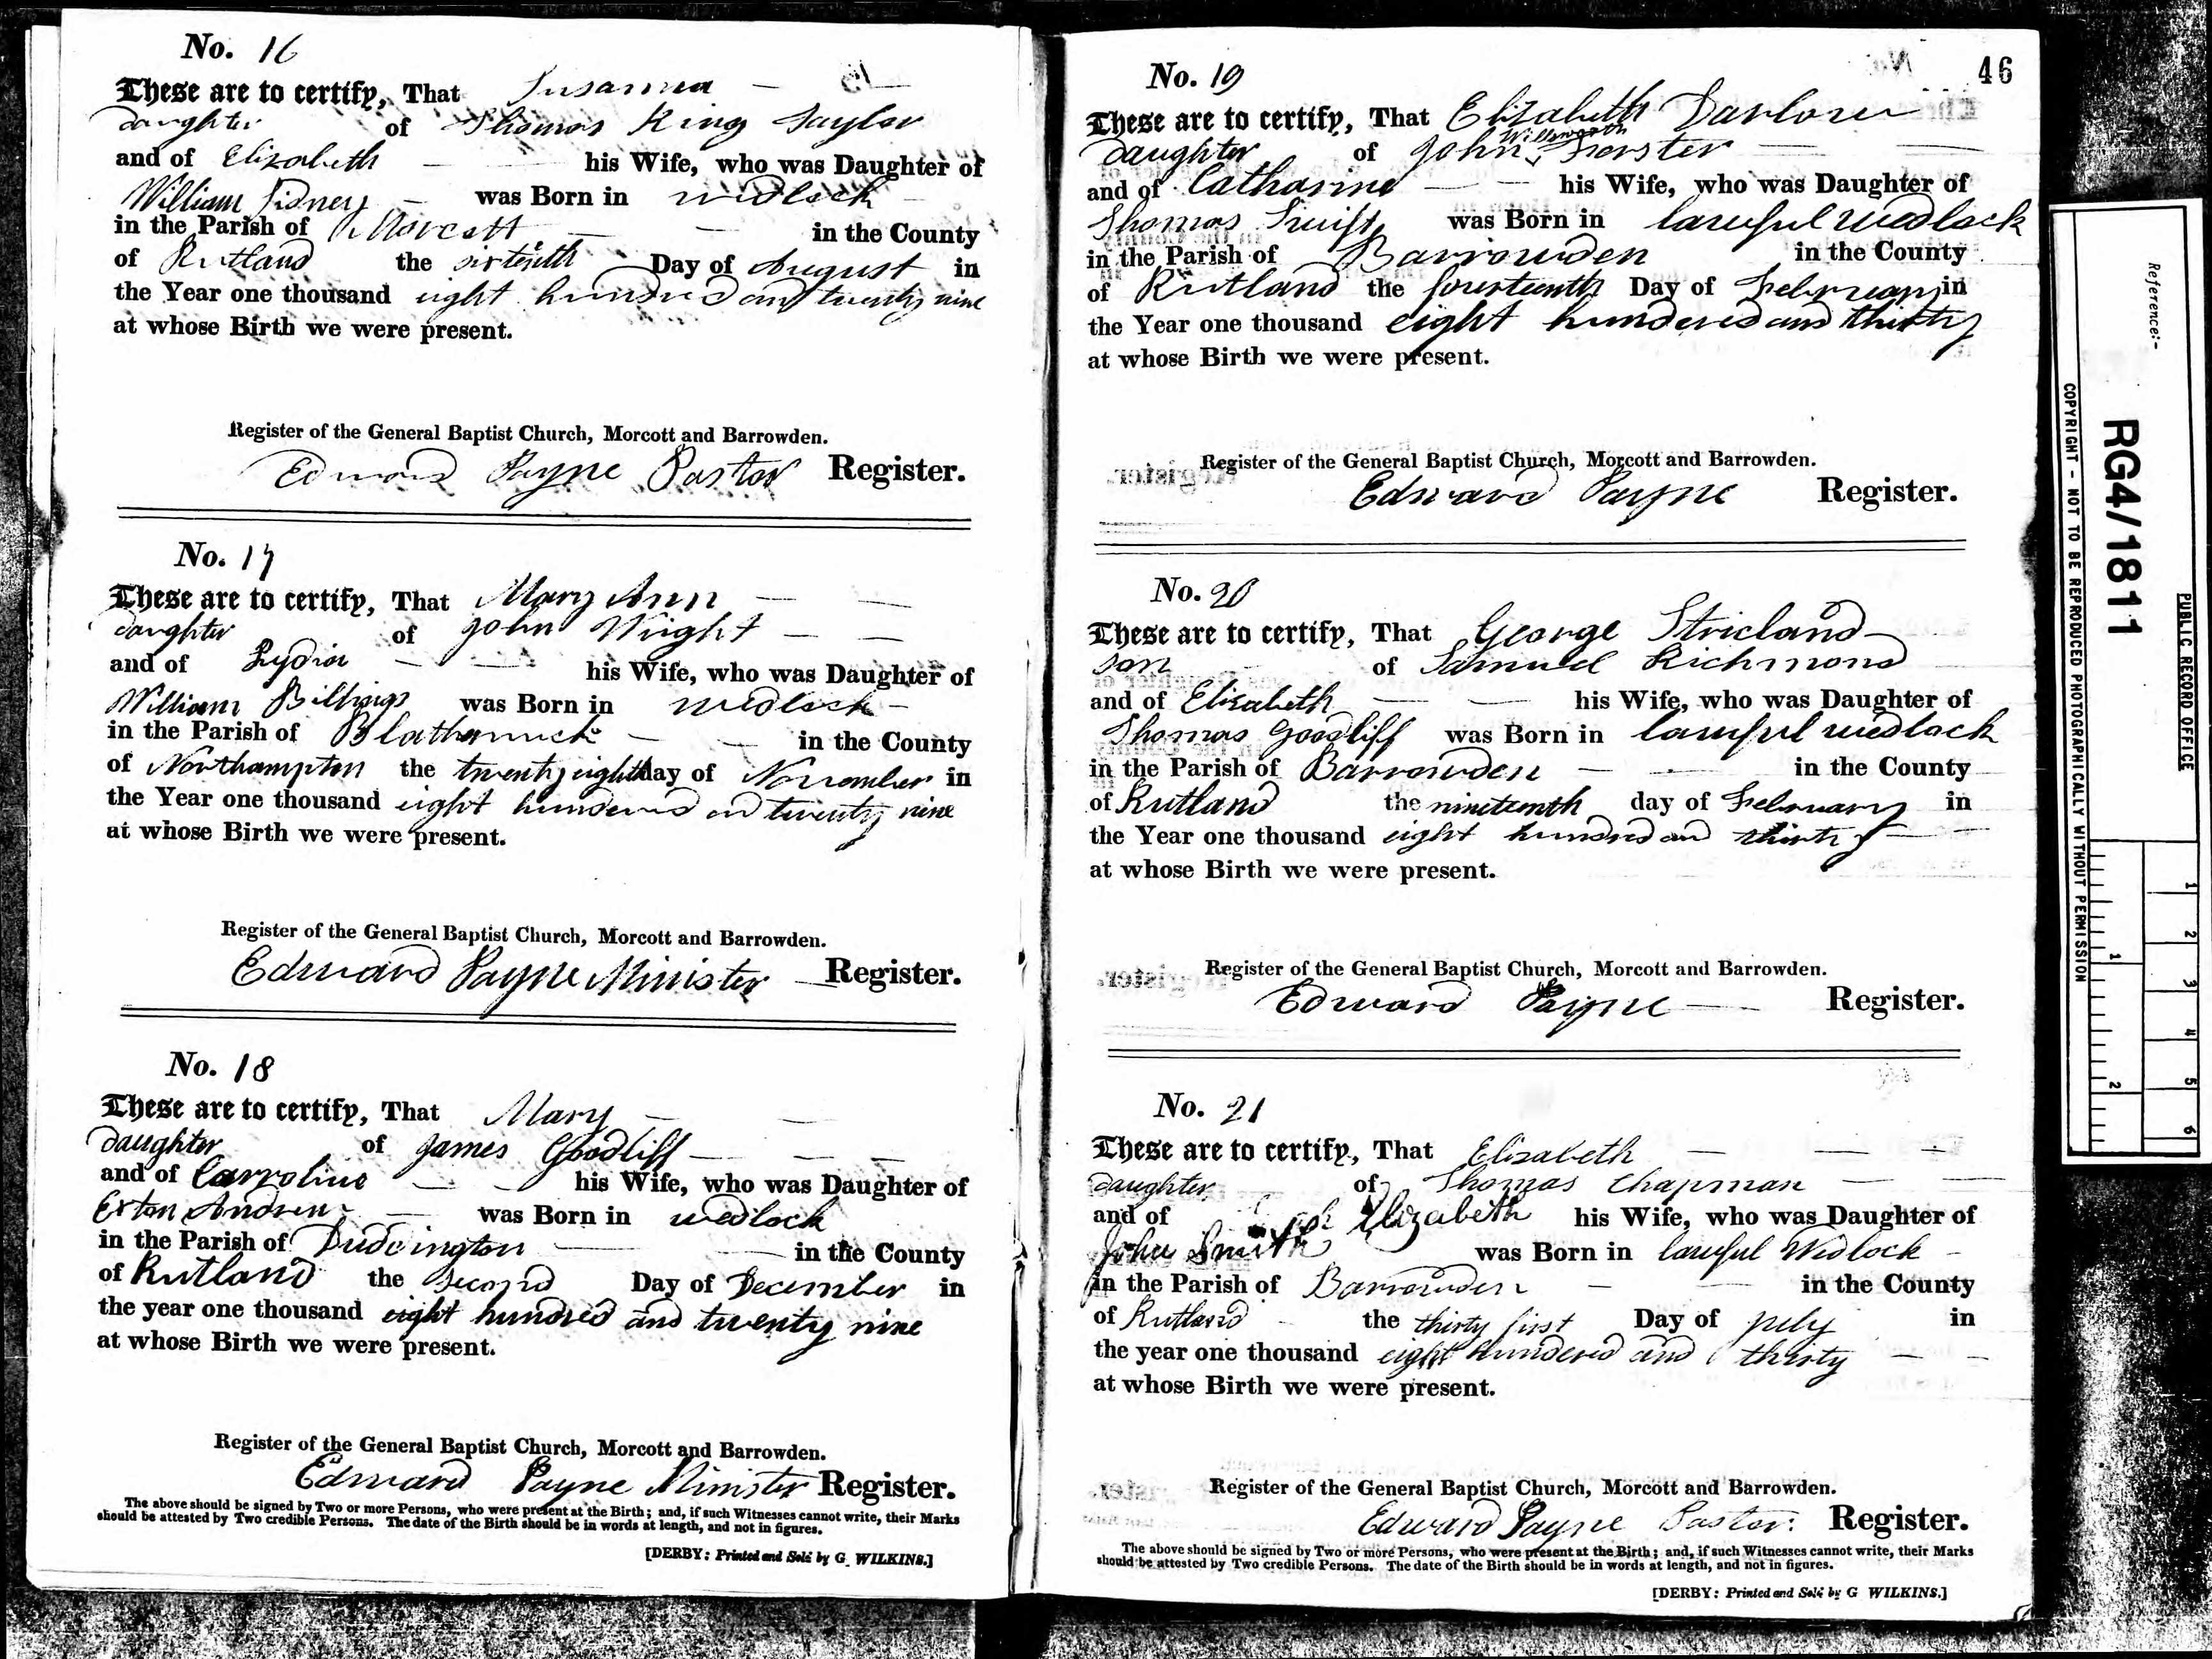 No. 16
These are to certify, That Susanna
daughter of Thomas King Taylor
and of Elizabeth his Wife, who was Daughter of
William Sidney was Born in wedlock
in the Parish of Morcott in the County
of Rutland the sixteenth Day of August in
the Year one thousand eight hundred and twenty nine
at whose Birth we were present.
Register of the General Baptist Church, Morcott and Barrowden.
Edward Payne Pastor Register.
No. 17
These are to certify, That Mary Ann
daughter of John Wright
and of Lydia his Wife, who was Daughter of
William Billings was Born in wedlock
in the Parish of Blatherwick in the County
of Northampton the twenty eight day of November in
the Year one thousand eight hundered and twenty nine
at whose Birth we were present.
Register of the General Baptist Church, Morcott and Barrowden.
Edward Payne Minister Register.
No. 18
These are to certify, That Mary
daughter of James Goodliff
and of Carroline his Wife, who was Daughter of
Exton Andrew was Born in wedlock
in the Parish of Duddington in the County
of Rutland the second Day of December in
the year one thousand eight hundred and twenty nine
at whose Birth we were present.
Register of the General Baptist Church, Morcott and Barrowden.
Edward Payne Minister Register.
The above should be signed by Two or more Persons, who were present at the Birth; and, if such Witnesses cannot write, their Marks
should be attested by Two credible Persons. The date of the Birth should be in words at length, and not in figures.
[DERBY: Printed and Sold by G. WILKINS.]
46
No. 19
These are to certify, That Elizabeth
daughter of John Willsworth Forster
and of Catharine his Wife, who was Daughter of
Thomas Swift was Born in lawful wedlock
in the Parish of Barrowden in the County
of Rutland the fourteenth Day of February in
the Year one thousand eight hundered and thirty
at whose Birth we were present.
Register of the General Baptist Church, Morcott and Barrowden.
Edward Payne Register.
No. 20
These are to certify, That George Stricland
son of Samuel Richmond
and of Elizabeth his Wife, who was Daughter of
Thomas Goodliff was Born in lawful wedlock
in the Parish of Barrowden in the County
of Rutland the nineteenth day of February in
the Year one thousand eight hundred and thirty
at whose Birth we were present.
Register of the General Baptist Church, Morcott and Barrowden.
Edward Payne Register.
No. 21
These are to certify, That Elizabeth
daughter of Thomas Chapman
and of Elizabeth his Wife, who was Daughter of
John Smith was Born in lawful Wedlock
in the Parish of Barrowden in the County
of Rutland the thirty first Day of july in
the year one thousand eight hundered and thirty
at whose Birth we were present.
Register of the General Baptist Church, Morcott and Barrowden.
Edward Payne Pastor. Register.
The above should be signed by Two or more Persons, who were present at the Birth; and, if such Witnesses cannot write, their Marks
should be attested by Two credible Persons. The date of the Birth should be in words at length, and not in figures.
[DERBY: Printed and Sold by G WILKINS.]
PUBLIC RECORD OFFICE
1 2 3 4 5 6
Reference:-
RG4/1811
1 2
COPYRIGHT - NOT TO BE REPRODUCED PHOTOGRAPHICALLY WITHOUT PERMISSION